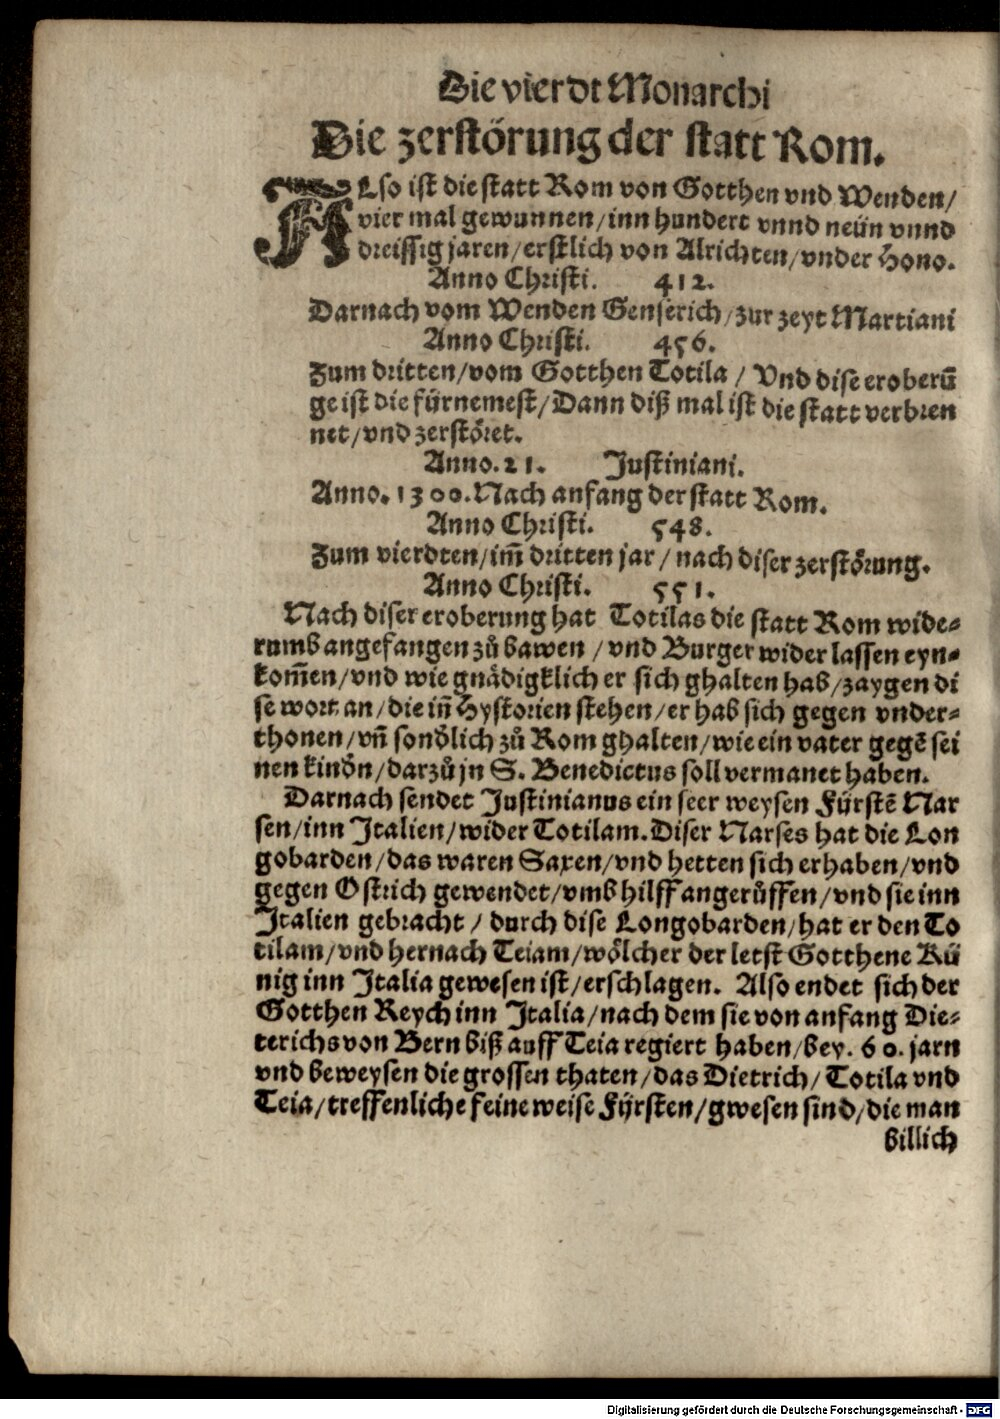 Die vierdt Monarchi
Die zerstörung der statt Rom.
ALso ist die statt Rom von Gotthen vnd Wenden/
vier mal gewunnen/inn hundert vnnd neün vnnd
dreissig jaren/erstlich von Alrichten/vnder Hono.
Anno Christi. 412.
Darnach vom Wenden Genserich/zur zeyt Martiani
Anno Christi. 456.
Zum dritten/vom Gotthen Totila / Vnd dise eroberũ
ge ist die fürnemest/Dann diß mal ist die statt verbren
net/vnd zerstöret.
Anno. 21. Justiniani.
Anno. 1300. Nach anfang der statt Rom.
Anno Christi. 548.
Zum vierdten/im̃ dritten jar / nach diser zerstörung.
Anno Christi. 551.
Nach diser eroberung hat Totilas die statt Rom wide⸗
rumb angefangen zů bawen / vnd Burger wider lassen eyn⸗
kom̃en/vnd wie gnädigklich er sich ghalten hab/zaygen di
se wort an/die iñ Hystorien stehen/er hab sich gegen vnder⸗
thonen/vñ sondlich zů Rom ghalten/wie ein vater gegẽ sei
nen kindn/darzů jn S. Benedictus soll vermanet haben.
Darnach sendet Justinianus ein seer weysen Fürstẽ Nar
sen/inn Italien/wider Totilam. Diser Narses hat die Lon
gobarden/das waren Saxen/vnd hetten sich erhaben/vnd
gegen Ostrich gewendet/vmb hilff angerůffen/vnd sie inn
Italien gebracht / durch dise Longobarden/hat er den To
tilam/vnd hernach Teiam/wölcher der letst Gotthene Kü
nig inn Italia gewesen ist/erschlagen. Also endet sich der
Gotthen Reych inn Italia/nach dem sie von anfang Die⸗
terichs von Bern biß auff Teia regiert haben/bey. 60. jarn
vnd beweysen die grossen thaten/das Dietrich/ Totila vnd
Teia/treffenliche feine weise Fürsten/gwesen sind/die man
billich
Digitalisierung gefördert durch die Deutsche Forschungsgemeinschaft - DFG